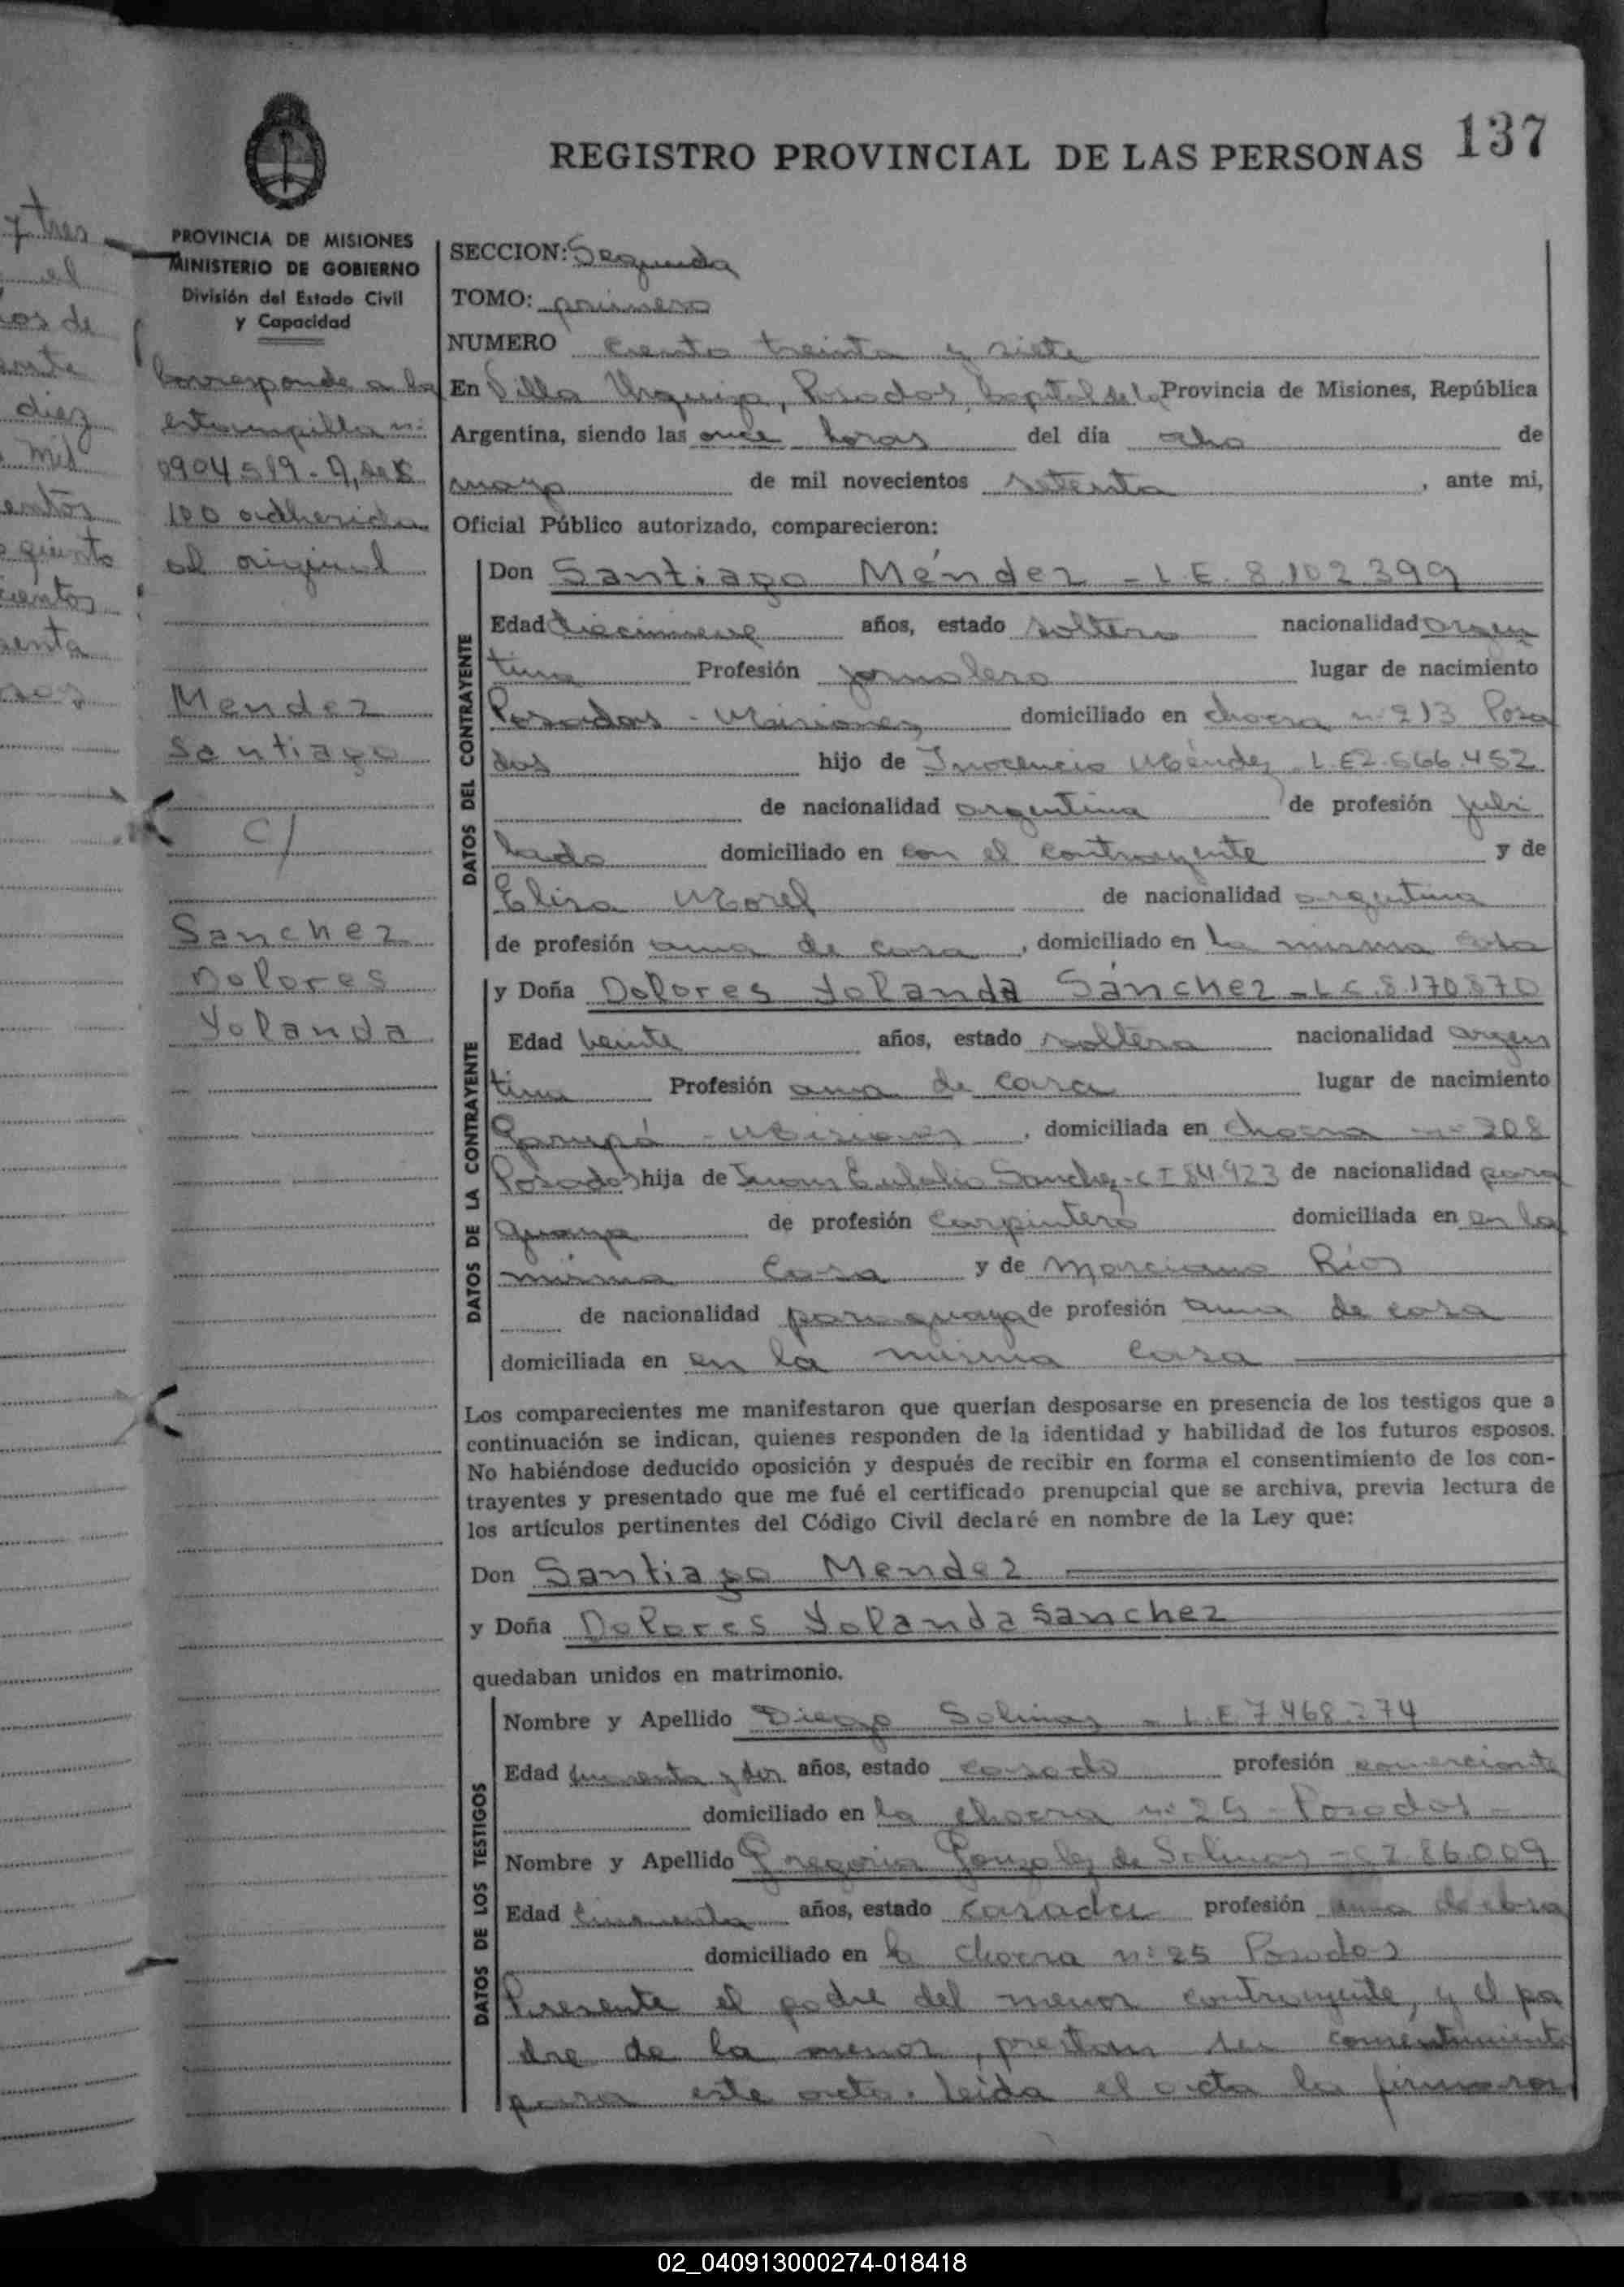 137
REGISTRO PROVINCIAL DE LAS PERSONAS
PROVINCIA DE MISIONES
MINISTERIO DE GOBIERNO
División del Estado Civil
y Capacidad
Corresponde a la
estampilla nº
0904519-A, de $
100 adherida
al original
Mendez
Santiago
c/
Sanchez
Dolores
Yolanda
SECCION: Segunda
TOMO: primero
NUMERO ciento treinta y siete
En Villa Urquiza, Posadas, Capital de la Provincia de Misiones, República
Argentina, siendo las once horas del día ocho de
mayo de mil novecientos setenta, ante mi,
Oficial Público autorizado, comparecieron:
DATOS DEL CONTRAYENTE
Don Santiago Méndez - L.E. 8.102.399
Edad diecinueve años, estado soltero nacionalidad argen
tina Profesión jornalero lugar de nacimiento
Posadas - Misiones domiciliado en chacra nº 213 Posa
das hijo de Inocencio Méndez L.E 2.566.452
de nacionalidad argentina de profesión jubi
lado domiciliado en con el contrayente y de
Elisa Morel de nacionalidad argentina
de profesión ama de casa, domiciliado en la misma
DATOS DE LA CONTRAYENTE
y Doña Dolores Yolanda Sánchez - L.C. 8.170.870
Edad veinte años, estado soltera nacionalidad argen
tina Profesión ama de casa lugar de nacimiento
Garupá - Misiones, domiciliada en chacra nº 208
Posadas hija de Juan Eulalio Sanchez - C I 84.923 de nacionalidad para
guaya de profesión carpintero domiciliada en en la
misma casa y de Marciana Ríos
de nacionalidad paraguaya de profesión ama de casa
domiciliada en en la misma casa
Los comparecientes me manifestaron que querían desposarse en presencia de los testigos que a
continuación se indican, quienes responden de la identidad y habilidad de los futuros esposos.
No habiéndose deducido oposición y después de recibir en forma el consentimiento de los con-
trayentes y presentado que me fué el certificado prenupcial que se archiva, previa lectura de
los artículos pertinentes del Código Civil declaré en nombre de la Ley que:
Don Santiago Mendez
y Doña Dolores Yolanda Sanchez
quedaban unidos en matrimonio.
DATOS DE LOS TESTIGOS
Nombre y Apellido Diego Solinas - L.E. 7.468.774
Edad y dos años, estado casado profesión comerciante
domiciliado en la chacra nº 25 - Posadas -
Nombre y Apellido Gregoria Gonzalez de Solinas - C I. 86.009
Edad cincuenta años, estado casada profesión ama de casa
domiciliado en la chacra nº 25 Posadas
Presente el padre del menor contrayente, y el pa
dre de la menor, prestan su consentimiento
para este acto. Leida el acta la firmaron
y tres
el
os de
diez
mil
entos
ientos
enta
02_040913000274-018418